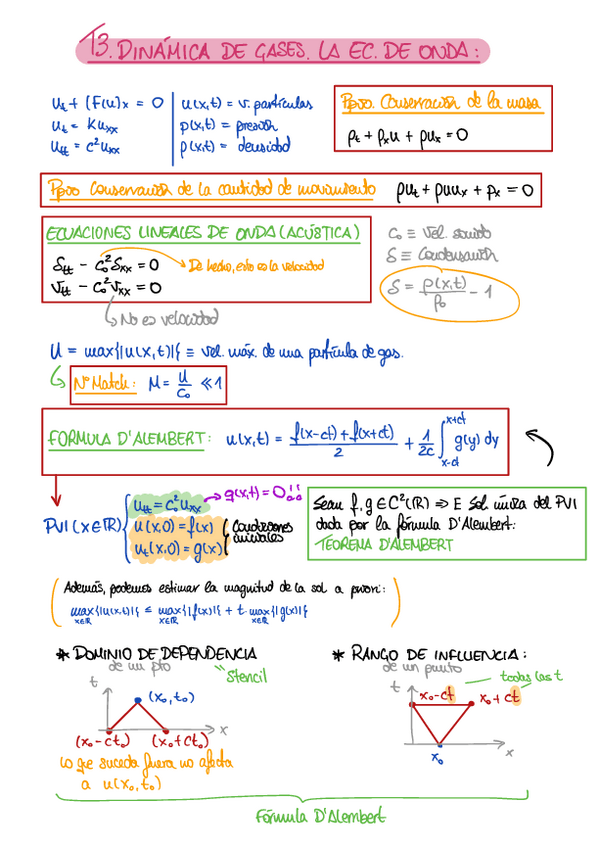 T3. DINÁMICA DE GASES. LA EC. DE ONDA:
u_t + (F(u))_x = 0
u_t = K u_xx
u_tt = c² u_xx
u(x,t) = v. partículas
p(x,t) = presión
ρ(x,t) = densidad
Ppio. Conservación de la masa
ρ_t + ρ_x u + ρu_x = 0
Ppio Conservación de la cantidad de movimiento ρu_t + ρuu_x + p_x = 0
ECUACIONES LINEALES DE ONDA (ACÚSTICA)
S_tt - c_0² S_xx = 0 → De hecho, esto es la velocidad
V_tt - c_0² V_xx = 0
↳ No es velocidad
c_0 ≡ Vel. sonido
S ≡ Condensación
S = ρ(x,t)/ρ_0 - 1
U = max{|u(x,t)|} ≡ vel. máx. de una partícula de gas.
↳ Nº Match: M = U/c_0 ≪ 1
FORMULA D'ALEMBERT: u(x,t) = (f(x-ct) + f(x+ct))/2 + 1/2c ∫_{x-ct}^{x+ct} g(y) dy
PVI (x∈ℝ) { u_tt = c_0² u_xx → g(x,t) = 0!!
u(x,0) = f(x)
u_t(x,0) = g(x)
Condiciones
iniciales
Sean f, g ∈ C²(ℝ) ⇒ ∃ Sol. única del PVI
dada por la fórmula D'Alembert:
TEOREMA D'ALEMBERT
Además, podemos estimar la magnitud de la sol a priori:
max_{x∈ℝ}{|u(x,t)|} ≤ max_{x∈ℝ}{|f(x)|} + t · max_{x∈ℝ}{|g(x)|}
* DOMINIO DE DEPENDENCIA
de un pto
"Stencil
t
(x_0, t_0)
x
(x_0 - ct_0) (x_0 + ct_0)
Lo que suceda fuera no afecta
a u(x_0, t_0)
* RANGO DE INFLUENCIA:
de un punto
todas las t
t
x_0 - ct
x_0 + ct
x
x_0
Fórmula D'Alembert